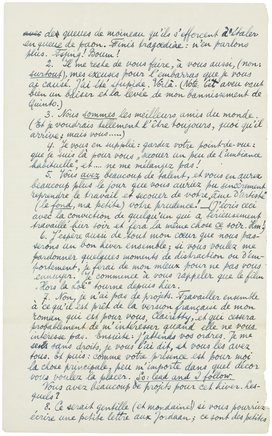 des queues de moineau qu'ils s'efforcent d'étaler
en queue de paon. Finis tragoediae: n'en parlons
plus. Boum!
2. Il me reste de vous faire, à vous aussi, (non:
surtout), mes excuses pour l'embarras que je vous
ai causé. J'ai été stupide. Voilà.
ben un baiser et la levée de mon bannissement de
Quinto.)
3. Nous sommes les meilleurs amis du monde
(Et je voudrais tellement l'être toujours, quoi qu'il
arrive; mais vous.....)
4. Je vous en supplie: gardez votre point-de-vue:
que je suis là pour vous, jouer un peu de l'ambiance
habituelle, et... ne me mélangez pas!
5. Vous avez beaucoup de talent, et vous en aurez
beaucoup plus le jour que vous aurez pu sincèrement
reprendre le travail et secouer de votre
le fond, ma petite) votre prudence! J'écris cela
avec la conviction de quelqu'un qui a sérieusement
travaillé hier soir et fera la même chose ce soir.
6. J'espère aussi de tout mon coeur que nous pas-
serons un bon hiver ensemble; si vous voulez me
pardonner quelques moments de distraction ou d'em-
portement, je ferai de mon mieux pour ne pas vous
ennuyer. Je commence à vous rappeler que le film
"Hors la loi" tourne depuis hier.
7. Non, je n'ai pas de projets. Travailler ensemble
à ce qu'il est prêt de la version française de mon
roman qui est pour vous, et qui cessera
probablement de m'intéresser quand elle ne vous
intéresse pas. Ensuite: j'attends vos ordres, je me
sens sans droits, je vous l'ai dit, et vous les avez
tous. Et puis: comme votre présence est pour moi
la chose principale, peu m'importe dans quel décor
vous voulez la placer. So: lead and I follow.
Vous avez beaucoup de projets pour cet hiver. Les-
quels?
8. Ce serait gentille (et mondaine) si vous pourriez
écrire une petite lettre aux Jordaan; ce sont des